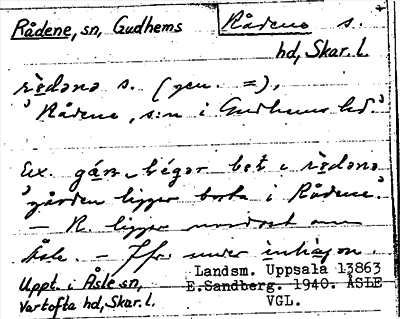 Rådene, sn, Gudhems
Rådene s.
hd, Skar. l.
s. (gen. =),
'Rådene, s:n i Gudhems hd.'
Ex.
'gården ligger borta i Rådene.'
— R. ligger nordost om
Åsle. — Jfr under
Uppt. i Åsle sn,
Vartofta hd, Skar. l.
Landsm. Uppsala 13863
E.Sandberg. 1940. ÅSLE
VGL.